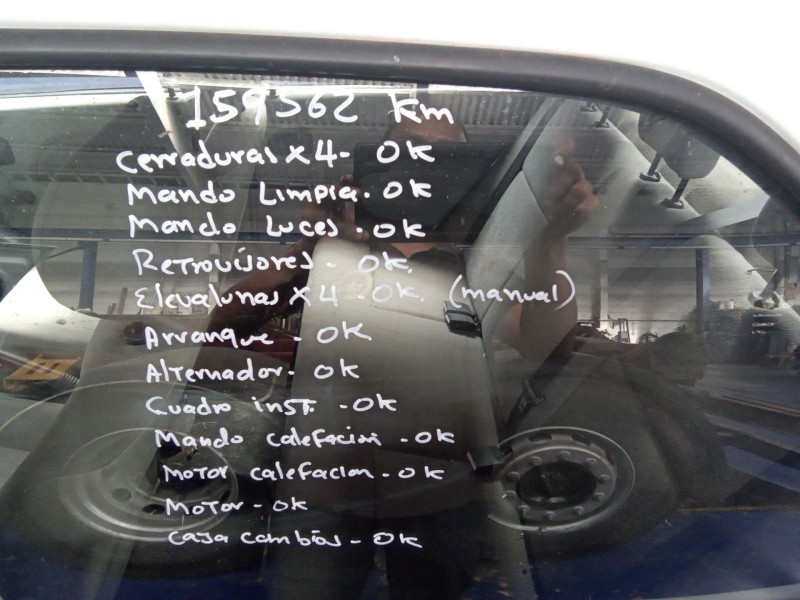 159562 Km
Cerraduras x 4 - OK
Mando Limpia. OK
Mando Luces - OK
Retrovisores - OK.
Elevalunas x 4 - OK. (manual)
Arranque - OK
Alternador - OK
Cuadro inst. - OK
Mando calefacion - OK
Motor calefacion - OK
Motor - OK
Caja cambios - OK